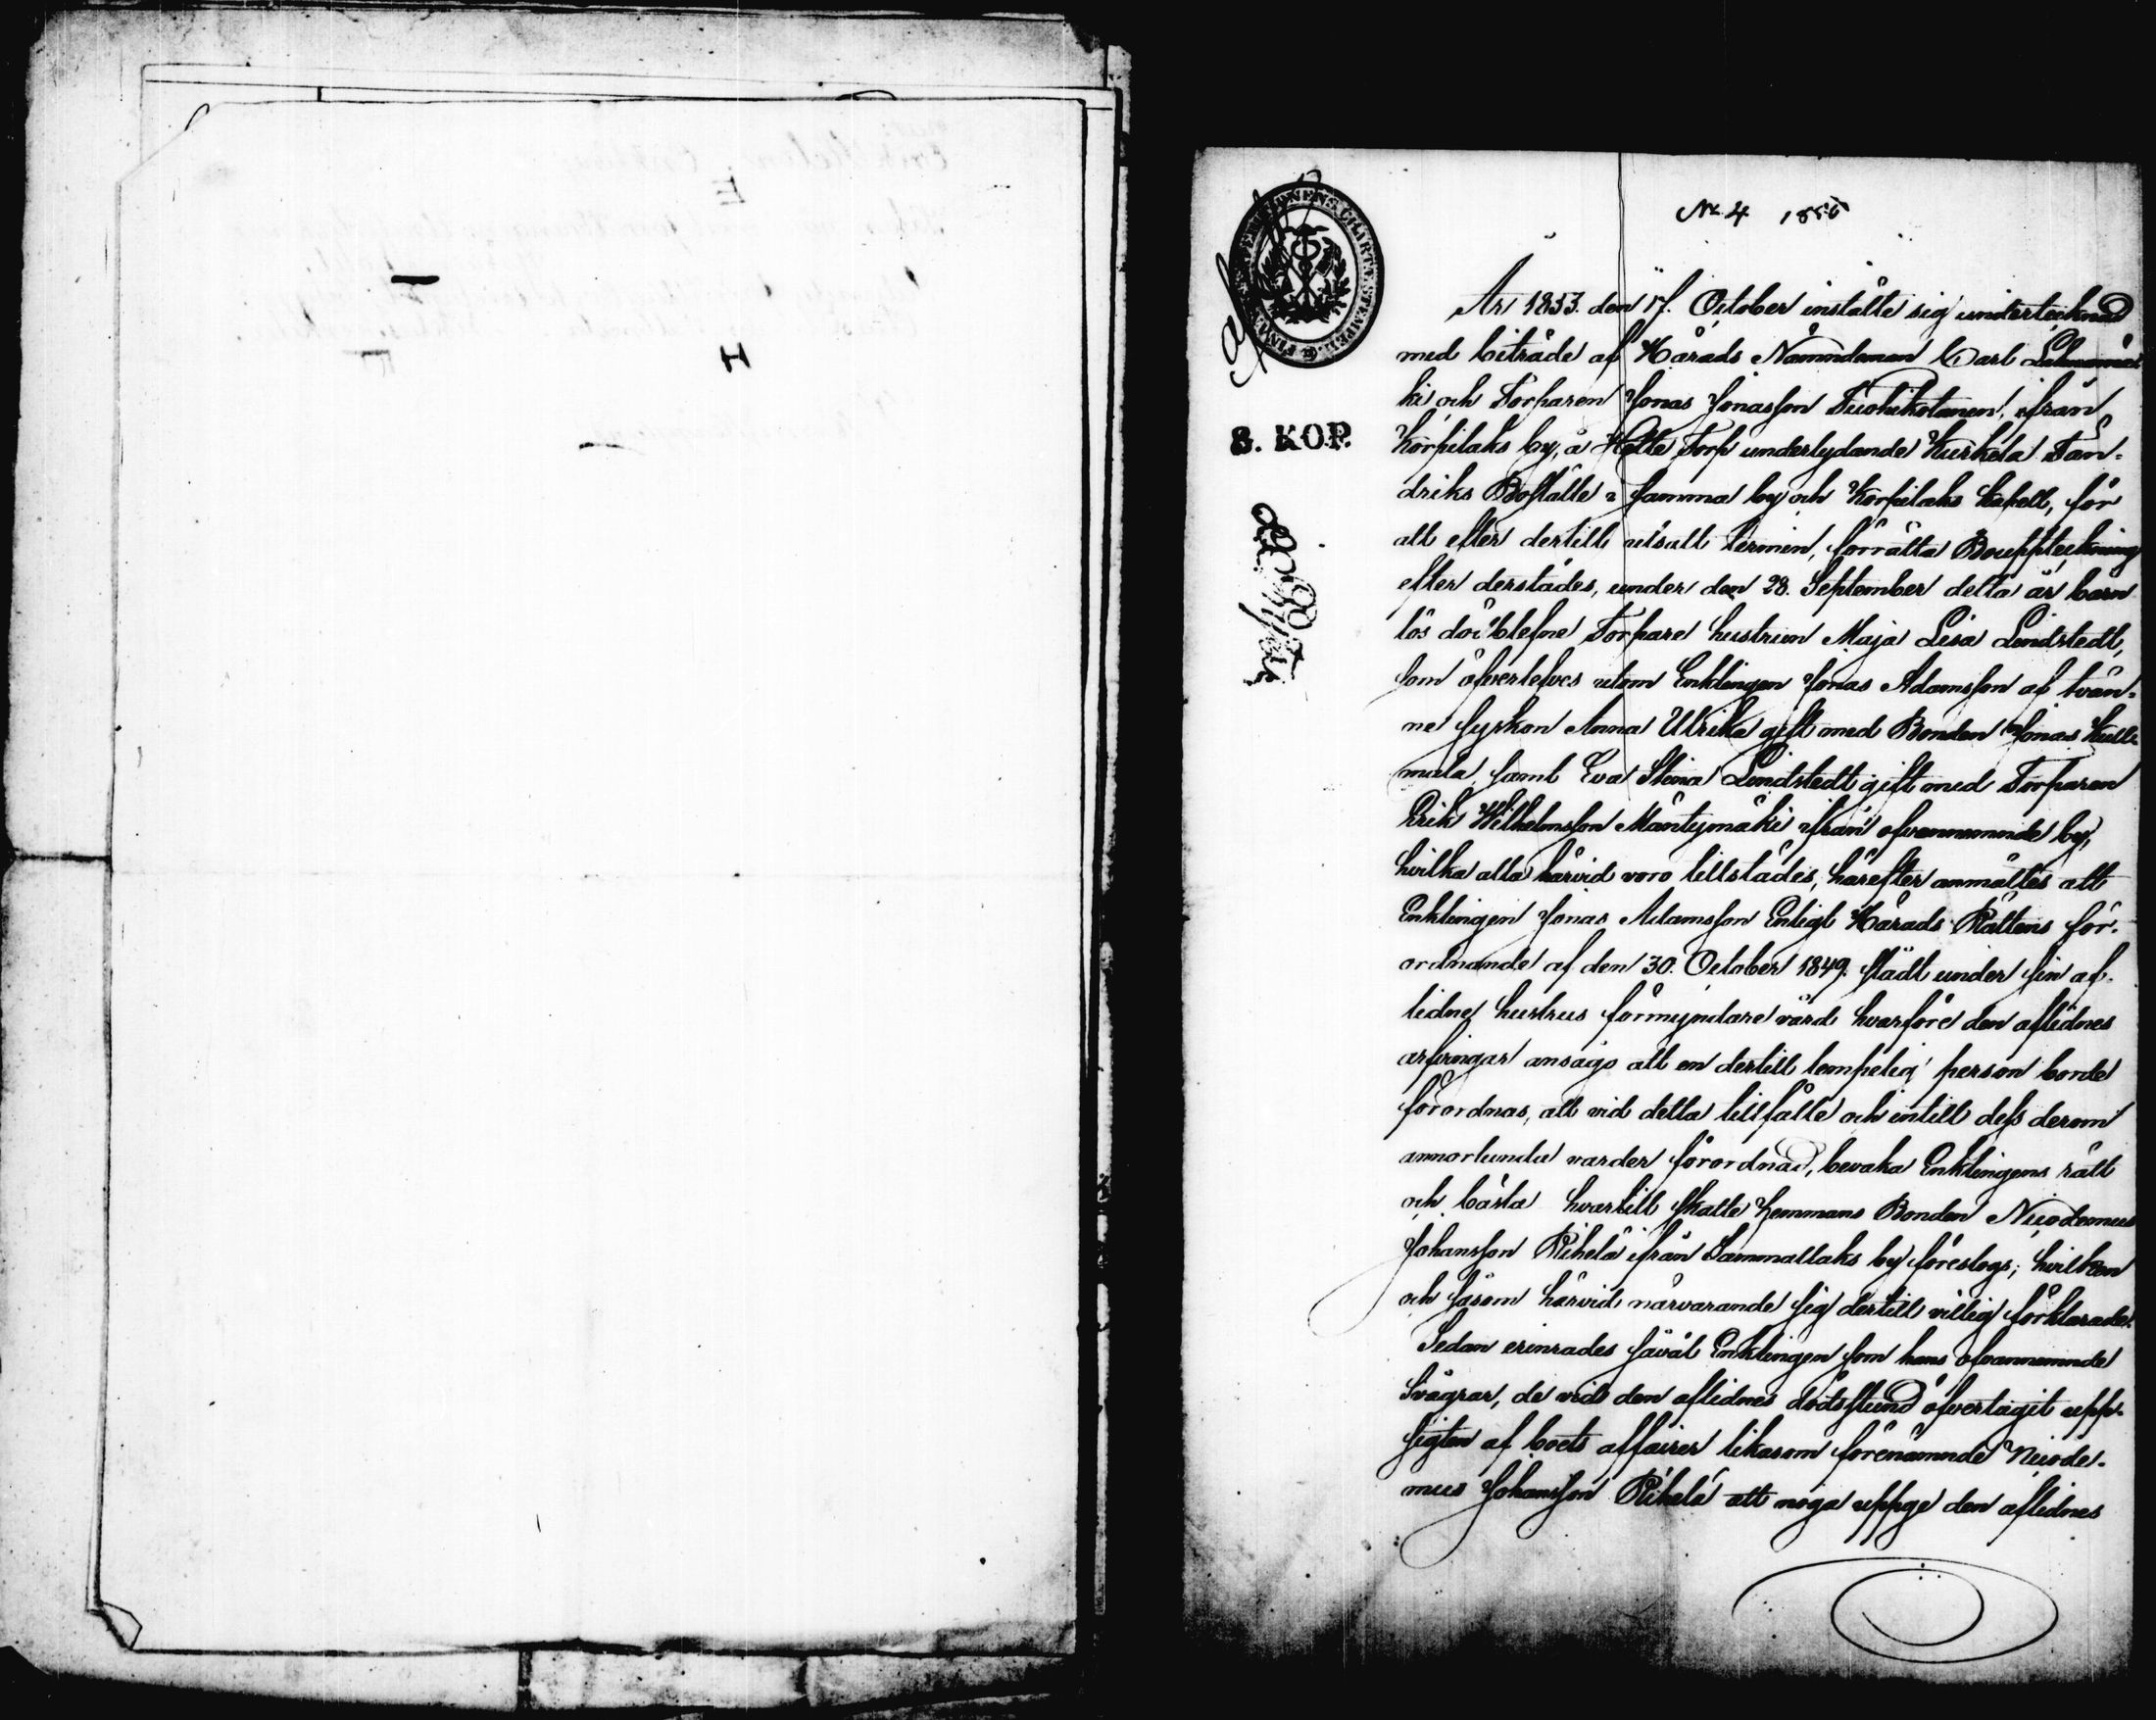 No 4 1856
År 1853. den 17. October instälte sig undertecknad
med biträde af Härads Nämndeman Carl
ki och Torparen Jonas Jonasson Tuohikotanen, ifrån
Korpilaks by, å Hette Torp underlydande Kurkela Fän-
driks Boställe i samma by och Korpilaks Kapell, för
att efter dertill utsatt termin, förrätta Bouppteckning
efter derstädes, under den 28. September detta år barn
lös död blefne Torpare hustrun Maja Lisa Lindstedt,
som öfverlefves utom Enklingen Jonas Adamsson af tvän-
ne syskon Anna Ulrika gift med Bonden Jonas Kull-
mala, samt Eva Stina Lindstedt gift med Torparen
Erik Wilhelmsson Mäntymäki ifrån ofvannemnde by,
hvilka alla härvid voro tillstädes, härefter anmältes att
Enklingen Jonas Adamsson Enligt Härads Rättens för-
ordnande af den 30. October 1849. städt under sin af-
lidne hustrus förmyndare vård hvarföre den aflidnes
arfvingar ansågo att en dertill lempelig person borde
förordnas, att vid detta tillfälle och intill dess derom
annorlunda varder förordnad, bevaka Enklingens rätt
och bästa hvartill skatte hemmans Bonden Nicodemus
Johansson Rihelä ifrån Sammallaks by föreslogs; hvilken
och såsom härvid närvarande sig dertill villig förklarade.
Sedan erinrades såväl Enklingen som hans ofvannemnde
Svägrar, de vid den aflidnes dödsstund öfvertagit upp-
sigten af boets affairer likasom förenämnde Nicode-
mus Johansson Rihelä att noga uppge den aflidnes
FINANS EXPEDITIONENS CHARTÆ STEMPEL
8. KOP.